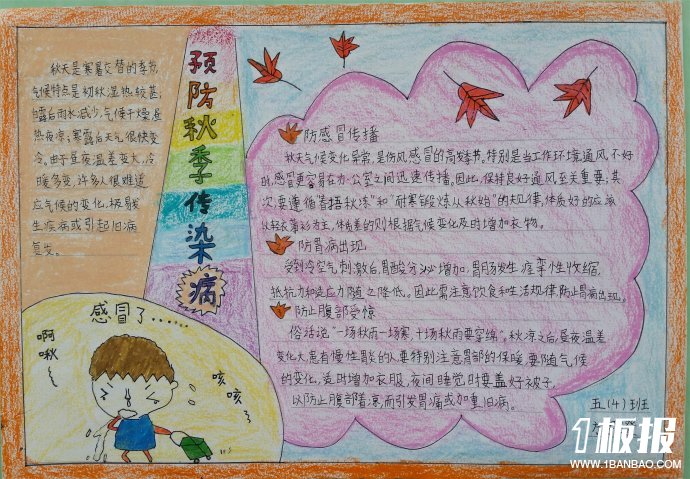 预防秋季传染病
秋天是寒暑交替的季节,
气候特点是初秋湿热较甚,
白露后雨水减少,气候干燥,昼
热夜凉;寒露后天气很快变
冷。由于昼夜温差变大,冷
暖多变,许多人很难适
应气候的变化,极易
生疾病或引起旧病
复发。
感冒了......
啊
啾~
咳
咳~
防感冒传播
秋天气候变化异常,是伤风感冒的高发季节。特别是当工作环境通风不好
时,感冒更容易在办公室之间迅速传播。因此,保持良好通风至关重要;其
次,要遵循“春捂秋冻”和“耐寒锻炼从秋始”的规律,体质好的应
从轻衣薄衫为主,体质差的则根据气候变化及时增加衣物。
防胃病出现
受到冷空气刺激后,胃酸分泌增加,胃肠发生痉挛性收缩,
抵抗力和适应力随之降低。因此需注意饮食和生活规律,防止胃病出现。
防止腹部受惊
俗话说“一场秋雨一场寒,十场秋雨要穿绵”。秋凉之后,昼夜温差
变化大,患有慢性胃炎的人要特别注意胃部的保暖,要随气候
的变化,适时增加衣服,夜间睡觉时要盖好被子,
以防止腹部着凉而引发胃痛或加重旧病。
五(4)班
1板报
WWW.1BANBAO.COM